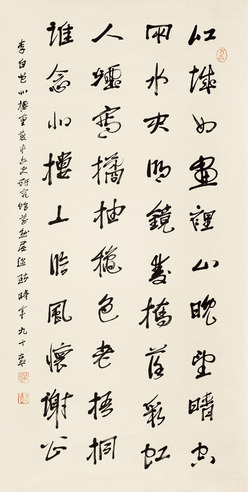 江城如畫裡山晚望晴空
兩水夾明鏡雙橋落彩虹
人煙寒橘柚秋色老梧桐
誰念北樓上臨風懷謝公
李白 研究館 時年九十